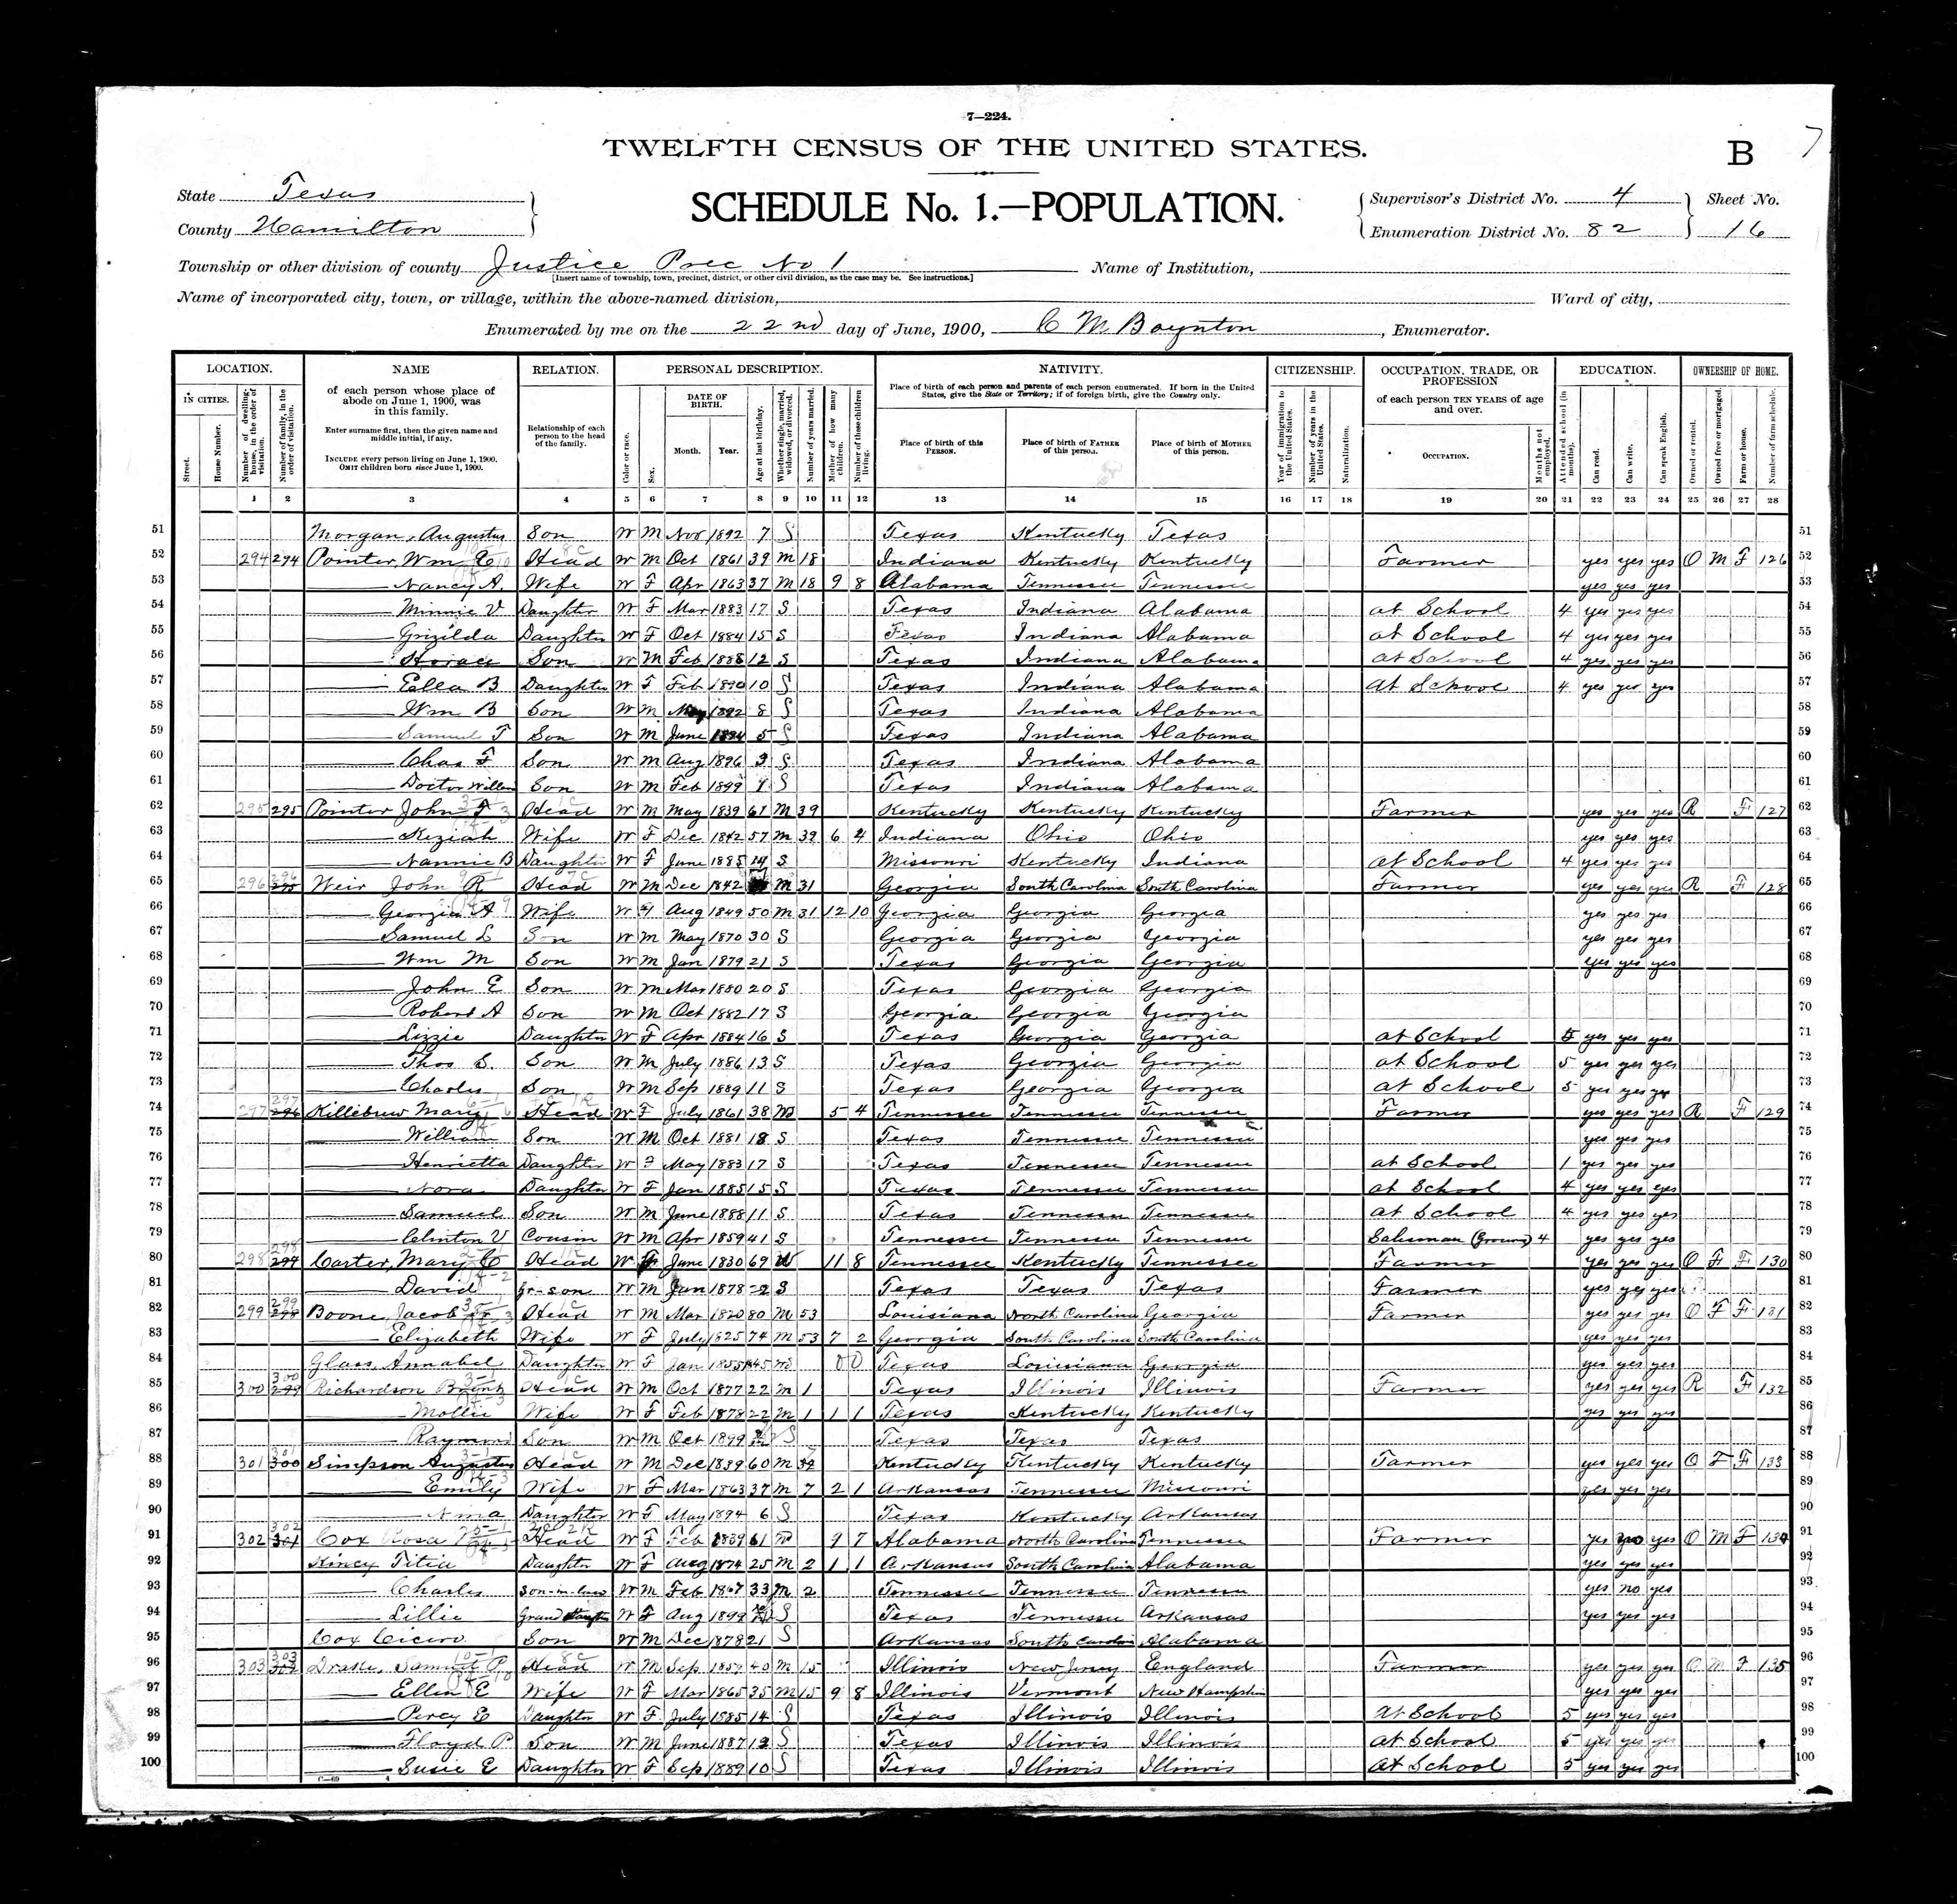 7—224.
TWELFTH CENSUS OF THE UNITED STATES.
B 7
State Texas
SCHEDULE No. 1.—POPULATION.
Supervisor's District No. 4 Sheet No.
County Hamilton
Enumeration District No. 82 16
Township or other division of county Justice Prec No 1 Name of Institution,
[Insert name of township, town, precinct, district, or other civil division, as the case may be. See instructions.]
Name of incorporated city, town, or village, within the above-named division, Ward of city,
Enumerated by me on the 22nd day of June, 1900, C M Boynton, Enumerator.
LOCATION. NAME RELATION. PERSONAL DESCRIPTION. NATIVITY. CITIZENSHIP. OCCUPATION, TRADE, OR PROFESSION EDUCATION. OWNERSHIP OF HOME.
IN CITIES. Street. House Number. Number of dwelling-house, in the order of visitation. Number of family, in the order of visitation.
of each person whose place of abode on June 1, 1900, was in this family.
Enter surname first, then the given name and middle initial, if any.
INCLUDE every person living on June 1, 1900. OMIT children born since June 1, 1900.
Relationship of each person to the head of the family.
Color or race. Sex. DATE OF BIRTH. Month. Year. Age at last birthday. Whether single, married, widowed, or divorced. Number of years married. Mother of how many children. Number of these children living.
Place of birth of each person and parents of each person enumerated. If born in the United States, give the State or Territory; if of foreign birth, give the Country only.
Place of birth of this PERSON. Place of birth of FATHER of this person. Place of birth of MOTHER of this person.
Year of immigration to the United States. Number of years in the United States. Naturalization.
of each person TEN YEARS of age and over.
OCCUPATION. Months not employed. Attended school (in months). Can read. Can write. Can speak English. Owned or rented. Owned free or mortgaged. Farm or house. Number of farm schedule.
1 2 3 4 5 6 7 8 9 10 11 12 13 14 15 16 17 18 19 20 21 22 23 24 25 26 27 28
51 Morgan, Augustus Son W M Nov 1892 7 S Texas Kentucky Texas 51
52 294 294 Pointer, Wm E Head W M Oct 1861 39 M 18 Indiana Kentucky Kentucky Farmer yes yes yes O M F 126 52
53 Nancy A. Wife W F Apr 1863 37 M 18 9 8 Alabama Tennessee Tennessee yes yes yes 53
54 Minnie V Daughter W F Mar 1883 17 S Texas Indiana Alabama at School 4 yes yes yes 54
55 Grizilda Daughter W F Oct 1884 15 S Texas Indiana Alabama at School 4 yes yes yes 55
56 Horace Son W M Feb 1888 12 S Texas Indiana Alabama at School 4 yes yes yes 56
57 Ella B Daughter W F Feb 1890 10 S Texas Indiana Alabama at School 4 yes yes yes 57
58 Wm B Son W M May 1892 8 S Texas Indiana Alabama 58
59 Samuel T Son W M June 1894 5 S Texas Indiana Alabama 59
60 Chas F Son W M Aug 1896 3 S Texas Indiana Alabama 60
61 Doctor Son W M Feb 1899 1 S Texas Indiana Alabama 61
62 295 295 Pointer John Head W M May 1839 61 M 39 Kentucky Kentucky Kentucky Farmer yes yes yes R F 127 62
63 Keziah Wife W F Dec 1842 57 M 39 6 4 Indiana Ohio Ohio yes yes yes 63
64 Nannie B Daughter W F June 1885 14 S Missouri Kentucky Indiana at School 4 yes yes yes 64
65 296 296 Weir John R Head W M Dec 1842 M 31 Georgia South Carolina South Carolina Farmer yes yes yes R F 128 65
66 Georgia A Wife W F Aug 1849 50 M 31 12 10 Georgia Georgia Georgia yes yes yes 66
67 Samuel L Son W M May 1870 30 S Georgia Georgia Georgia yes yes yes 67
68 Wm M Son W M Jan 1879 21 S Texas Georgia Georgia yes yes yes 68
69 John E Son W M Mar 1880 20 S Texas Georgia Georgia 69
70 Robert A Son W M Oct 1882 17 S Georgia Georgia Georgia 70
71 Lizzie Daughter W F Apr 1884 16 S Texas Georgia Georgia at School 5 yes yes yes 71
72 Thos S. Son W M July 1886 13 S Texas Georgia Georgia at School 5 yes yes yes 72
73 Charles Son W M Sep 1889 11 S Texas Georgia Georgia at School 5 yes yes yes 73
74 297 297 Killebrew Mary Head W F July 1861 38 Wd 5 4 Tennessee Tennessee Tennessee Farmer yes yes yes R F 129 74
75 William Son W M Oct 1881 18 S Texas Tennessee Tennessee yes yes yes 75
76 Henrietta Daughter W F May 1883 17 S Texas Tennessee Tennessee at School 1 yes yes yes 76
77 Nora Daughter W F Jan 1885 15 S Texas Tennessee Tennessee at School 4 yes yes yes 77
78 Samuel Son W M June 1888 11 S Texas Tennessee Tennessee at School 4 yes yes yes 78
79 Clinton V Cousin W M Apr 1859 41 S Tennessee Tennessee Tennessee Salesman 4 yes yes yes 79
80 298 298 Carter, Mary C Head W F June 1830 69 Tennessee Kentucky Tennessee 11 8 Farmer yes yes yes O F F 130 80
81 David Gr-son W M Jan 1878 22 S Texas Texas Texas Farmer yes yes yes 81
82 299 299 Boone, Jacob Head W M Mar 1820 80 M 53 Louisiana North Carolina Georgia Farmer yes yes yes O F F 131 82
83 Elizabeth Wife W F July 1825 74 M 53 7 2 Georgia South Carolina South Carolina yes yes yes 83
84 Glass, Annabel Daughter W F Jan 1855 45 Wd 0 0 Texas Louisiana Georgia yes yes yes 84
85 300 300 Richardson Head W M Oct 1877 22 M 1 Texas Illinois Illinois Farmer yes yes yes R F 132 85
86 Mollie Wife W F Feb 1878 22 M 1 1 1 Texas Kentucky Kentucky yes yes yes 86
87 Raymond Son W M Oct 1899 S Texas Texas Texas 87
88 301 301 Simpson Augustus Head W M Dec 1839 60 M 7 Kentucky Kentucky Kentucky Farmer yes yes yes O F F 133 88
89 Emily Wife W F Mar 1863 37 M 7 2 1 Arkansas Tennessee Missouri yes yes yes 89
90 Daughter W F May 1894 6 S Texas Kentucky Arkansas 90
91 302 302 Cox Rosa Head W F Feb 1839 61 Wd 9 7 Alabama North Carolina Tennessee Farmer yes no yes O M F 134 91
92 Kincy Titia Daughter W F Aug 1874 25 M 2 1 1 Arkansas South Carolina Alabama yes yes yes 92
93 Charles Son-in-law W M Feb 1867 33 M 2 Tennessee Tennessee Tennessee yes no yes 93
94 Lillie Grand daughter W F Aug 1899 S Texas Tennessee Arkansas yes yes yes 94
95 Cox Cicero Son W M Dec 1878 21 S Arkansas South Carolina Alabama 95
96 303 303 Drake, Samuel P Head W M Sep 1859 40 M 15 Illinois New Jersey England Farmer yes yes yes O M F 135 96
97 Ellen E Wife W F Mar 1865 35 M 15 9 8 Illinois Vermont New Hampshire yes yes yes 97
98 Percy E Daughter W F July 1885 14 S Texas Illinois Illinois at School 5 yes yes yes 98
99 Floyd P Son W M June 1887 12 S Texas Illinois Illinois at School 5 yes yes yes 99
100 Susie E Daughter W F Sep 1889 10 S Texas Illinois Illinois at School 5 yes yes yes 100